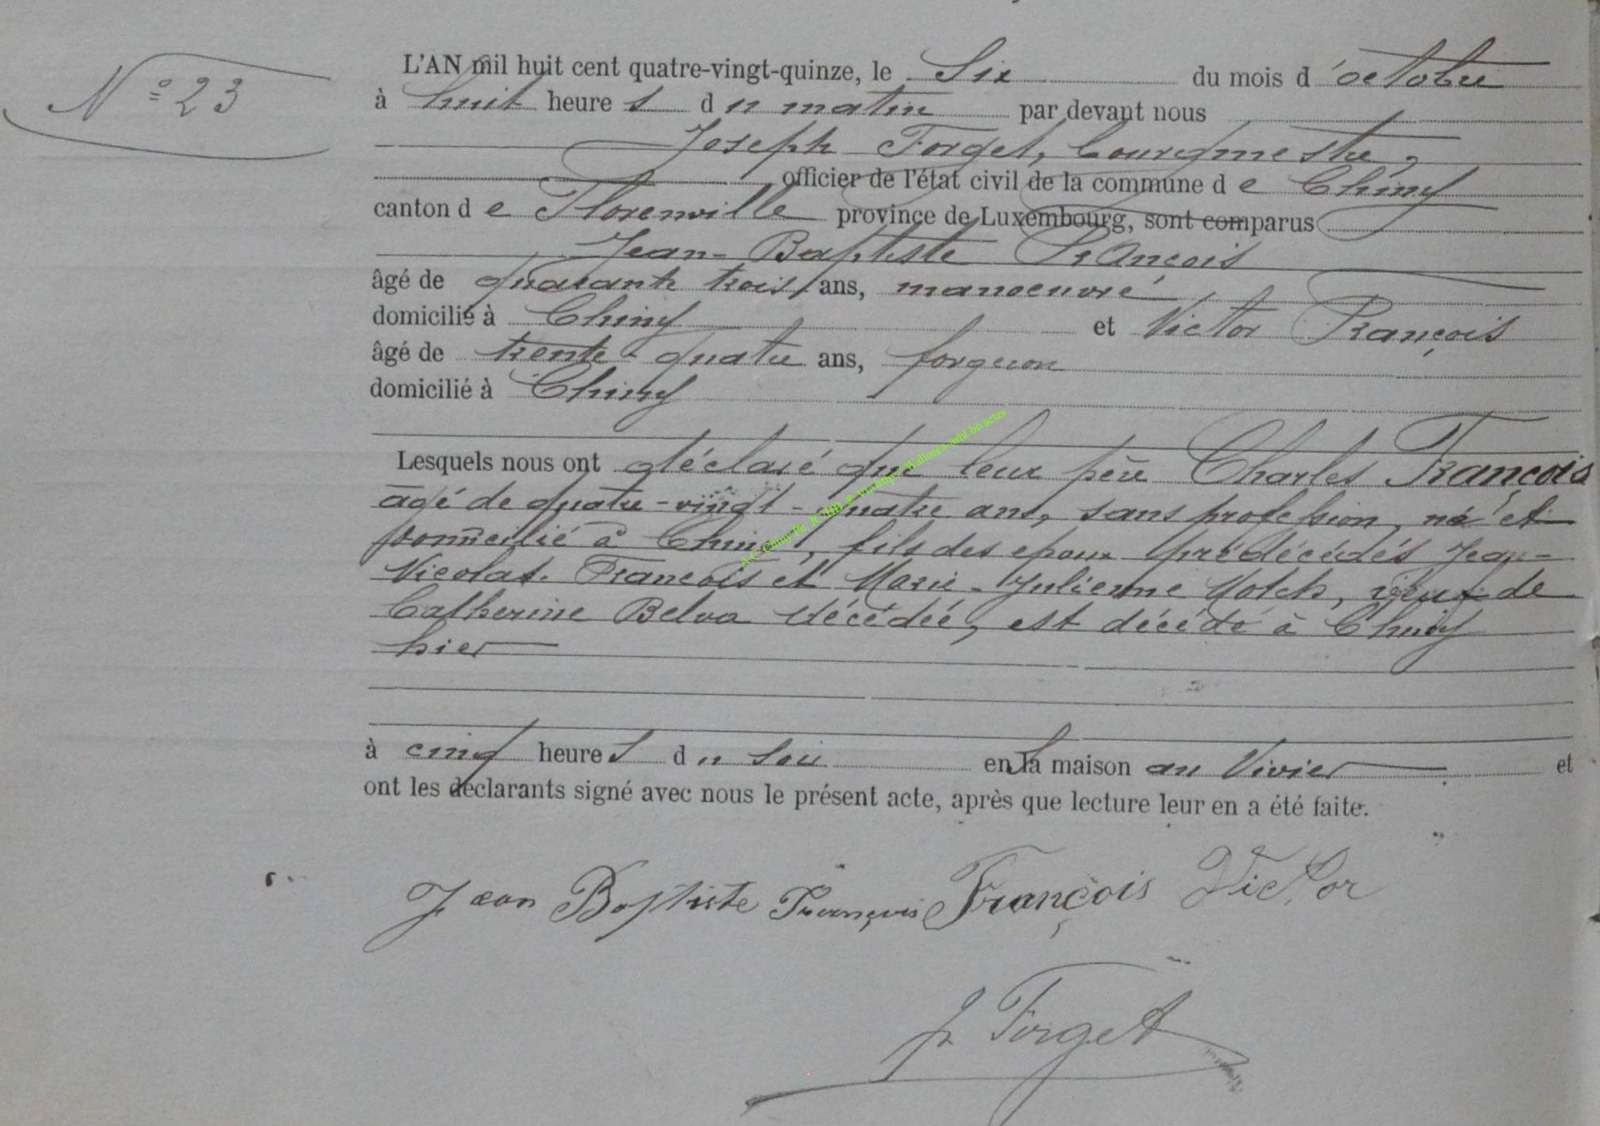 N° 23
L'AN mil huit cent quatre-vingt-quinze, le Six du mois d'octobre
à huit heures du matin par devant nous
Joseph Forget, bourgmestre,
officier de l'état civil de la commune de Chiny
canton de Florenville province de Luxembourg, sont comparus
Jean-Baptiste François
âgé de quarante trois ans, manoeuvre
domicilié à Chiny et Victor François
âgé de trente-quatre ans, forgeron
domicilié à Chiny
Lesquels nous ont déclaré que leur père Charles François
âgé de quatre-vingt-quatre ans, sans profession, né et
domicilié à Chiny, fils des epoux prédécédés Jean-
Nicolas François et Marie-Julienne, veuf de
Catherine Belva décédée, est décédé à Chiny
hier
à cinq heures du soir en sa maison au Vivier et
ont les déclarants signé avec nous le présent acte, après que lecture leur en a été faite.
Jean Baptiste François François Victor
J. Forget